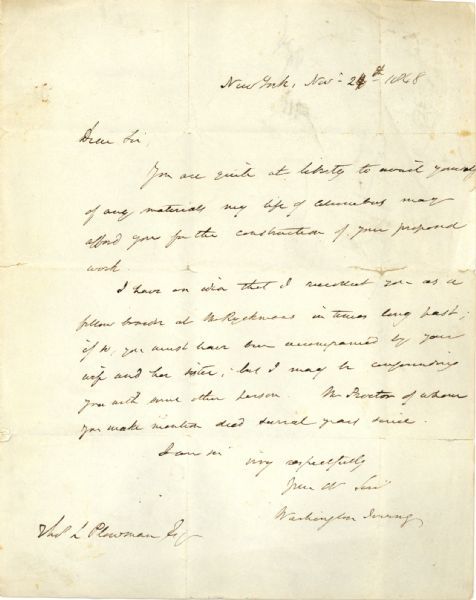 New York, Nov. 24th 1848
Dear Sir,
You are quite at liberty to avail yourself
of any materials my life of Columbus may
afford you for the construction of your proposed
work.
I have an idea that I recollect you as a
fellow boarder at Mr Ryckmans in times long past;
if so, you must have been accompanied by your
wife and her sister; but I may be confounding
you with some other person. Mr of whom
you make mention died several years since.
I am sir very respectfully
Your Ob Serv
Washington Irving
Thos L Plowman Esq